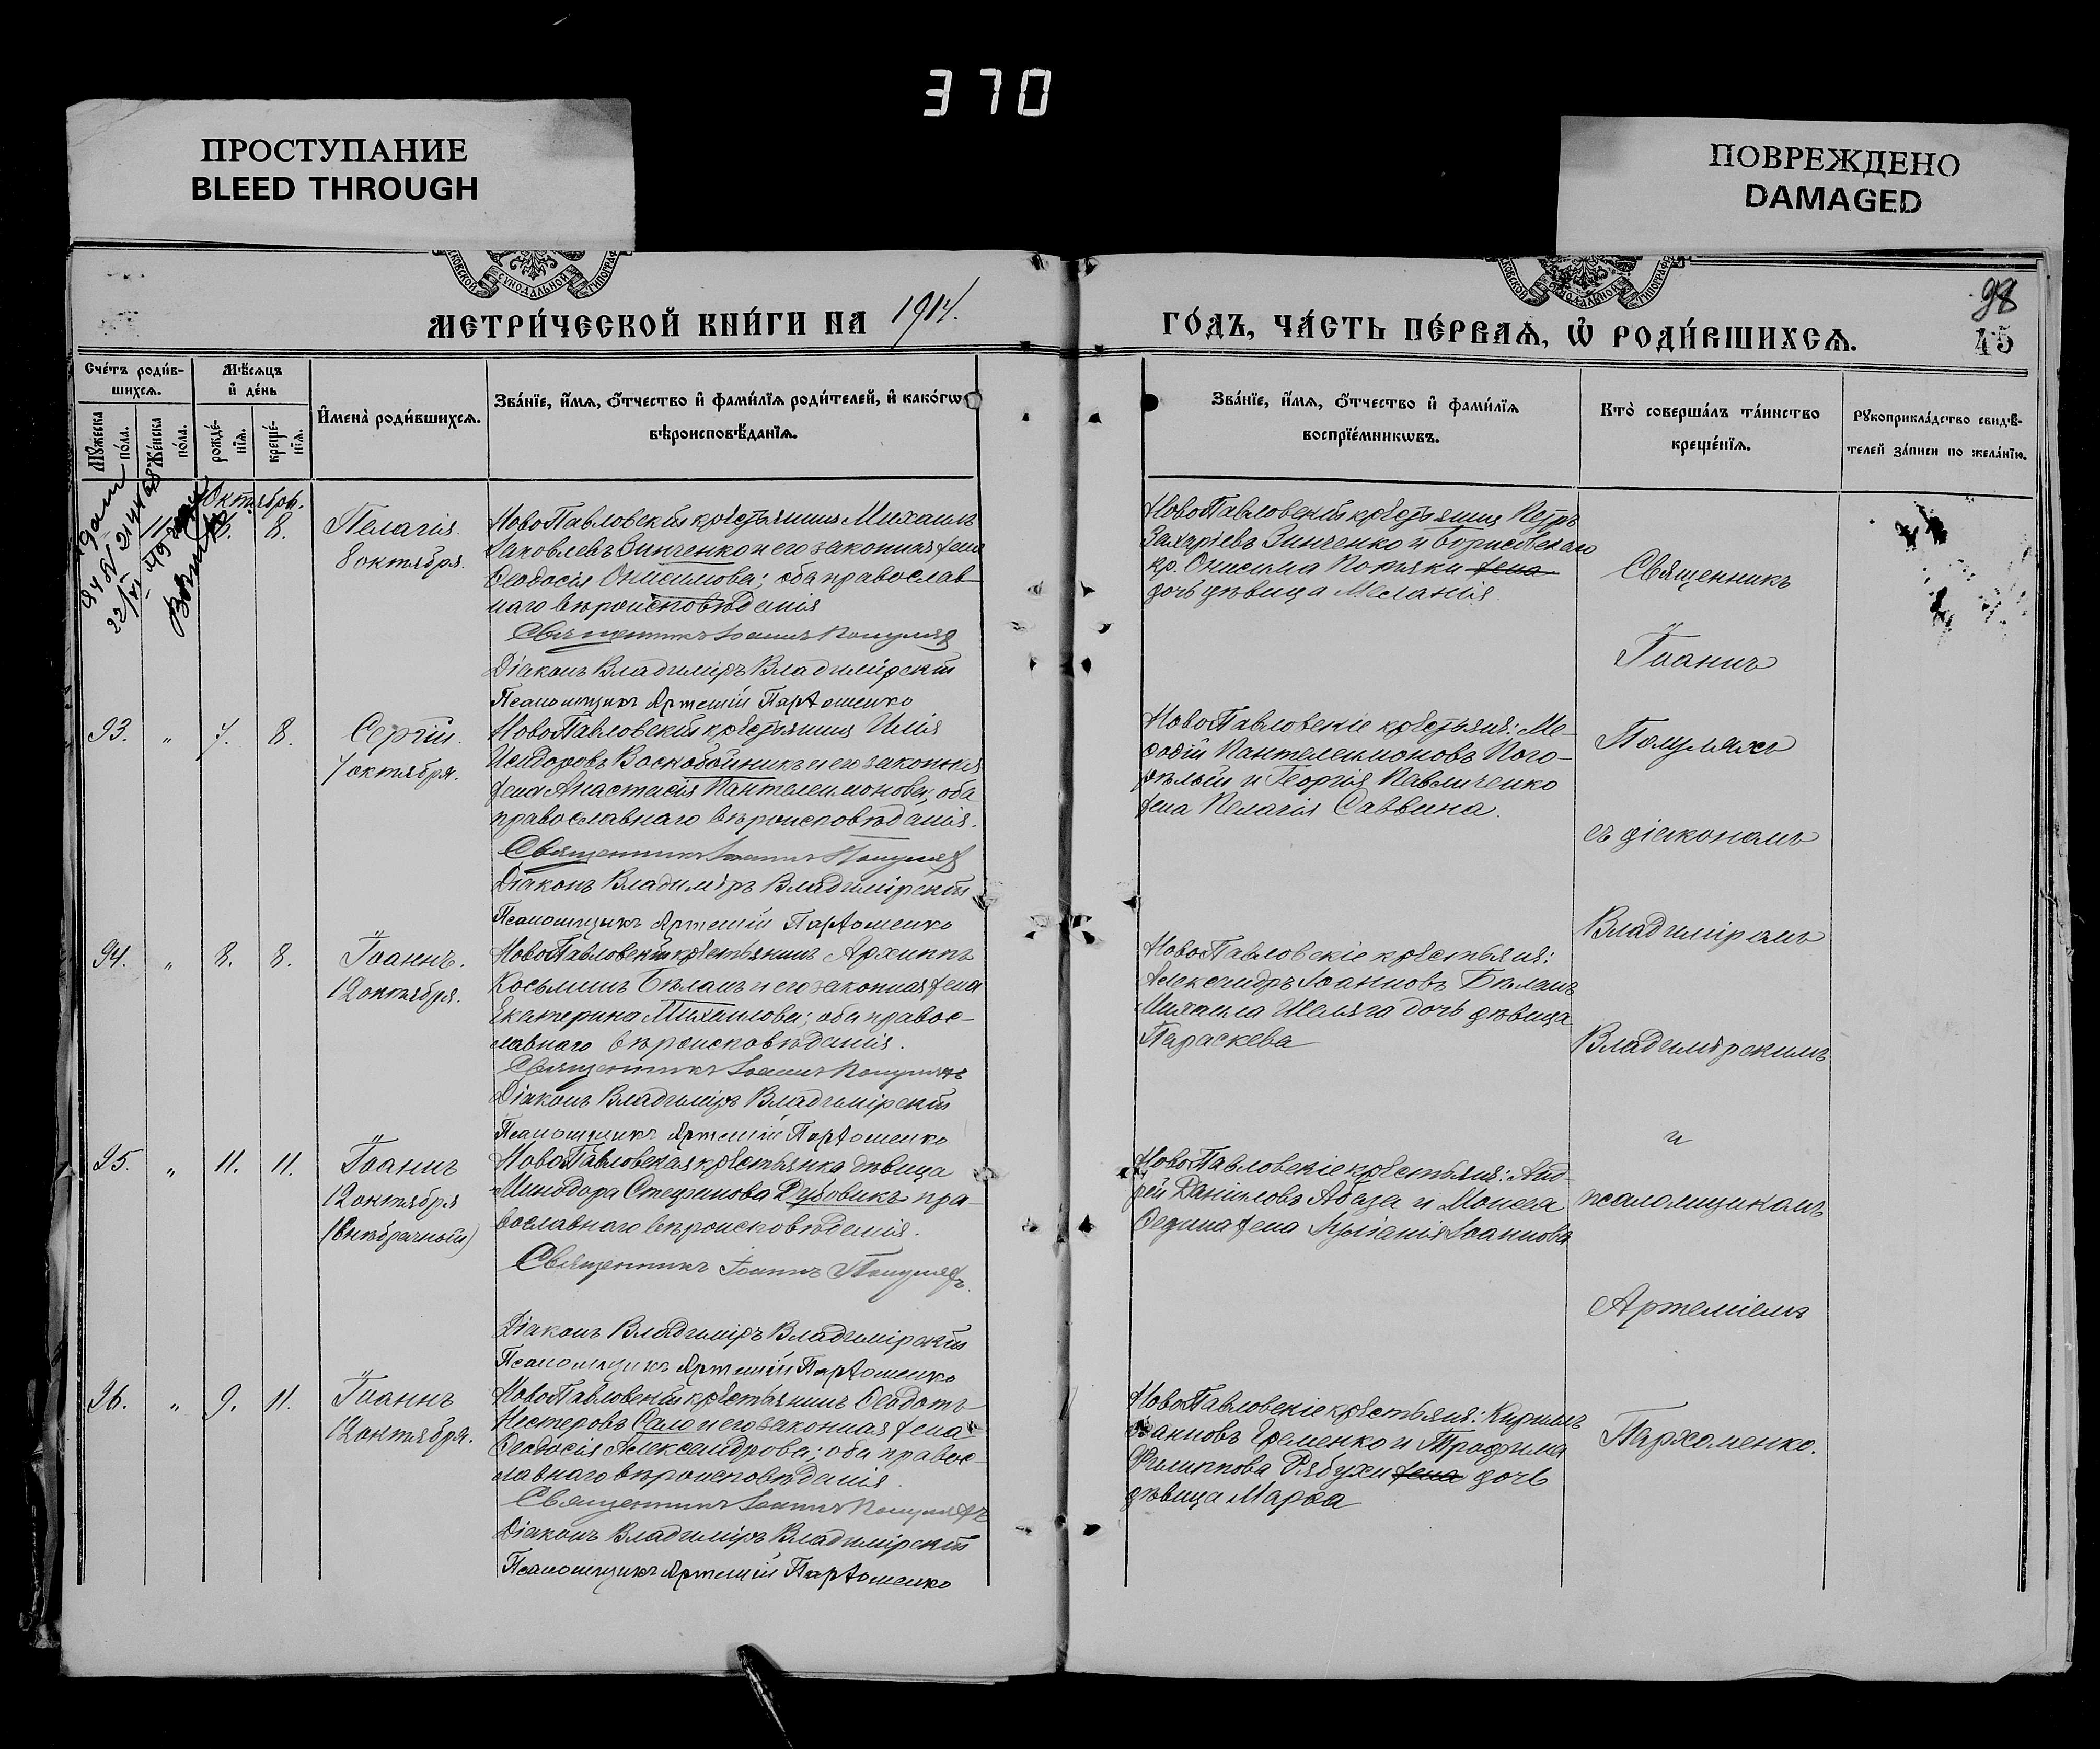 370
ПРОСТУПАНИЕ
BLEED THROUGH
ПОВРЕЖДЕНО
DAMAGED
СѴНОДАЛЬНОЙ
МЕТРИ́ЧЕСКОЙ КНИ́ГИ НА 1914.
ГО́ДЪ, ЧА́СТЬ ПЕ́РВАѦ, Ѡ РОДИ́ВШИХСѦ.
98
45
Счéтъ роди́в-
шихсѧ.
Мꙋ́жеска по́ла.
Же́нска по́ла.
Мѣ́сѧцъ
и҆ де́нь
рожде́-
нїѧ.
креще́-
нїѧ.
И҆мена̀ роди́вшихсѧ.
Зва́нїе, и҆́мѧ, ѻ҆́тчество и҆ фами́лїѧ роди́телей, и҆ како́гѡ
вѣроисповѣ́данїѧ.
Зва́нїе, и҆́мѧ, ѻ҆́тчество и҆ фами́лїѧ
воспрїе́мникѡвъ.
Кто̀ соверша́лъ та́инство
креще́нїѧ.
Рꙋкоприкла́дство свидѣ́-
телей за́писи по жела́нїю.
Октября.
8.
Пелагія
8 октября.
НовоПавловскій крестьянинъ Михаилъ
Іаковлевъ Зинченко и его законная жена
Ѳеодосія Онисимова; оба православ-
наго вѣроисповѣданія
Священникъ Іоаннъ
Діаконъ Владиміръ Владимірскій
Псаломщикъ Артемій Пархоменко
НовоПавловскій крестьянинъ Петръ
Захаріевъ Зинченко и Борисовскаго
кр. Онисима жена
дочь дѣвица Меланія.
93. " 7. 8.
Сергій.
7 октября.
НовоПавловскій крестьянинъ Илія
Исидоровъ Воскобойникъ и его законная
жена Анастасія Пантелеимонова; оба
православнаго вѣроисповѣданія.
Священникъ Іоаннъ
Діаконъ Владиміръ Владимірскій
Псаломщикъ Артемій Пархоменко
НовоПавловскіе крестьяне: Ме-
ѳодій Пантелеимоновъ Пого-
рѣлый и Георгія Павличенко
жена Пелагія Саввина.
94. " 8. 8.
Іоаннъ.
12 октября.
НовоПавловскій крестьянинъ Архиппъ
Косьминъ Бѣланъ и его законная жена
Екатерина Михаилова; оба правос-
лавнаго вѣроисповѣданія.
Священникъ Іоаннъ
Діаконъ Владиміръ Владимірскій
Псаломщикъ Артемій Пархоменко
НовоПавловскіе крестьяне:
Александръ Іоанновъ Бѣланъ
Михаила Шеляга дочь дѣвица
Параскева
95. " 11. 11.
Іоаннъ
12 октября
(внѣбрачный)
НовоПавловская крестьянка дѣвица
Минодора Стефанова Дубовикъ пра-
вославнаго вѣроисповѣданія.
Священникъ Іоаннъ
Діаконъ Владиміръ Владимірскій
Псаломщикъ Артемій Пархоменко
НовоПавловскіе крестьяне: Анд-
рей Даніиловъ Абаза и Моисея
жена Іуліанія Іоаннова
96. " 9. 11.
Іоаннъ
12 октября.
НовоПавловскій крестьянинъ Ѳеодотъ
Несторовъ Сало и его законная жена
Ѳеодосія Александрова; оба правос-
лавнаго вѣроисповѣданія.
Священникъ Іоаннъ
Діаконъ Владиміръ Владимірскій
Псаломщикъ Артемій Пархоменко
НовоПавловскіе крестьяне: Кириллъ
Іоанновъ Еременко и Трофима
Филиппова Рябухи жена дочь
дѣвица Марѳа
Священникъ
Іоаннъ
съ діакономъ
Владиміромъ
Владимірскимъ
и
псаломщикомъ
Артеміемъ
Пархоменко.